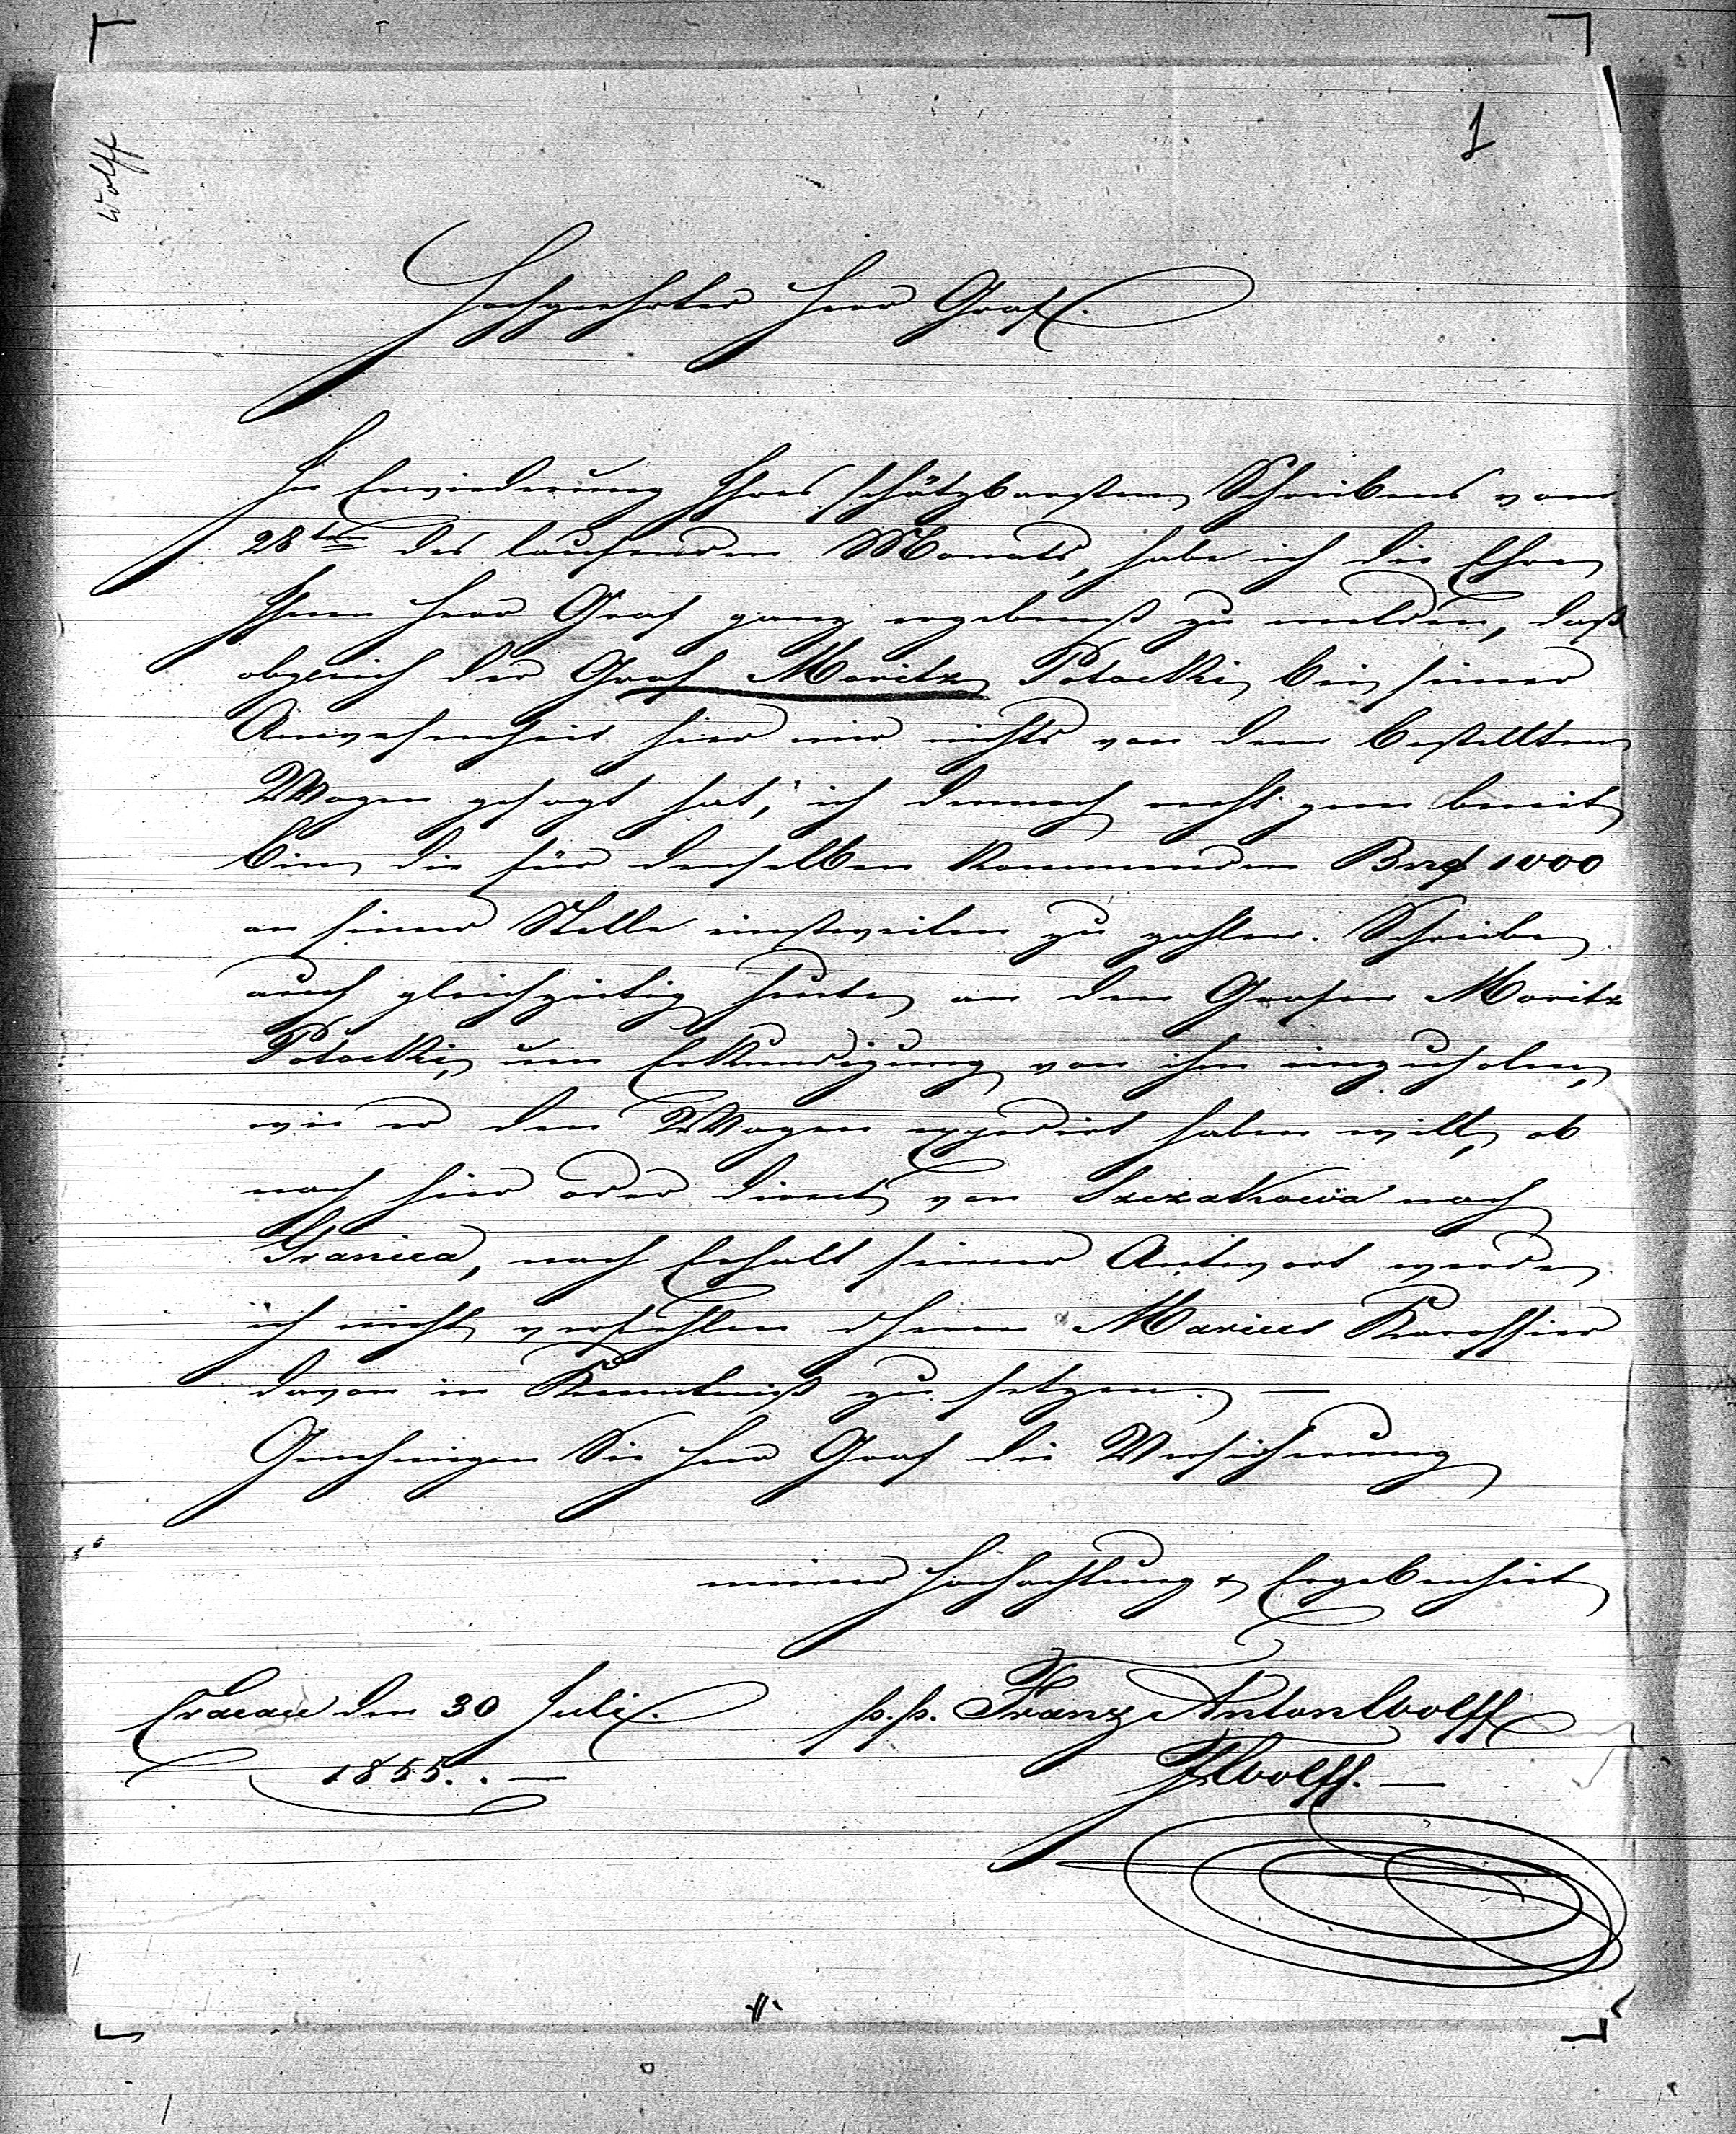 Wolff
1
Hochgeehrter Herr Graf.
In Erwiederung Ihres schätzbarsten Schreibens vom
28ten des laufenden Monats, habe ich die Ehre
Ihnen Herr Graf ganz ergebenst zu melden, daß
obgleich der Graf Moritz Potocki bei seiner
Anwesenheit hier mir nichts von dem bestellten
Wagen gesagt hat, ich dennoch recht gern bereit
bin die für denselben kommenden 1000
an seiner Stelle einstweilen zu zahlen. Schreibe
auch gleichzeitig heute an den Grafen Moritz
Potocki, um Erkundigung von ihm einzuholen,
wie er den Wagen expedirt haben will, ob
nach hier oder direct von Szczakowa nach
Granica, nach Erhalt seiner Antwort werde
ich nicht verfehlen Herrn Marius
davon in Kenntniß zu setzen. —
Genehmigen Sie Herr Graf die Versicherung
meiner Hochachtung & Ergebenheit
Cracau den 30 Juli.
1855. . —
p.p. Franz Anton Wolff
FWolff. —